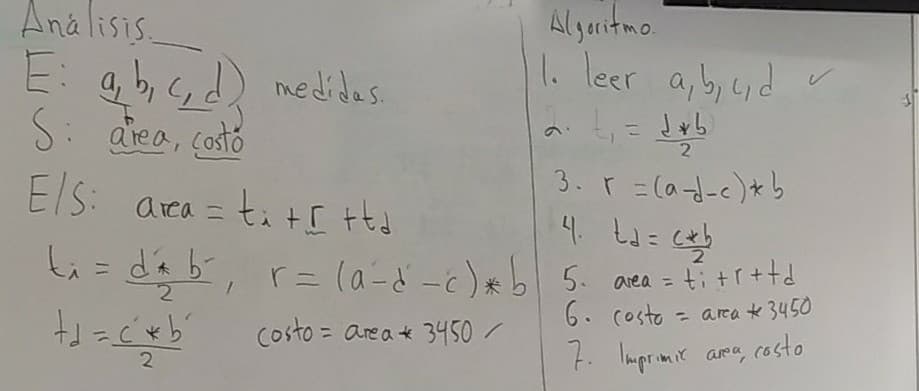 Análisis.
E: a, b, c, d) medidas.
S: área, costo
E/S: area = ti + r + td
ti = d * b / 2 , r = (a - d - c) * b
td = c * b / 2 costo = area * 3450
Algoritmo.
1. leer a, b, c, d ✓
2. t, = d * b / 2
3. r = (a-d-c) * b
4. td = c * b / 2
5. area = ti + r + td
6. costo = area * 3450
7. Imprimir area, costo